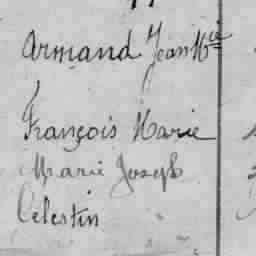 Armand Jean Mie
François Marie
Marie Joseph
Célestin